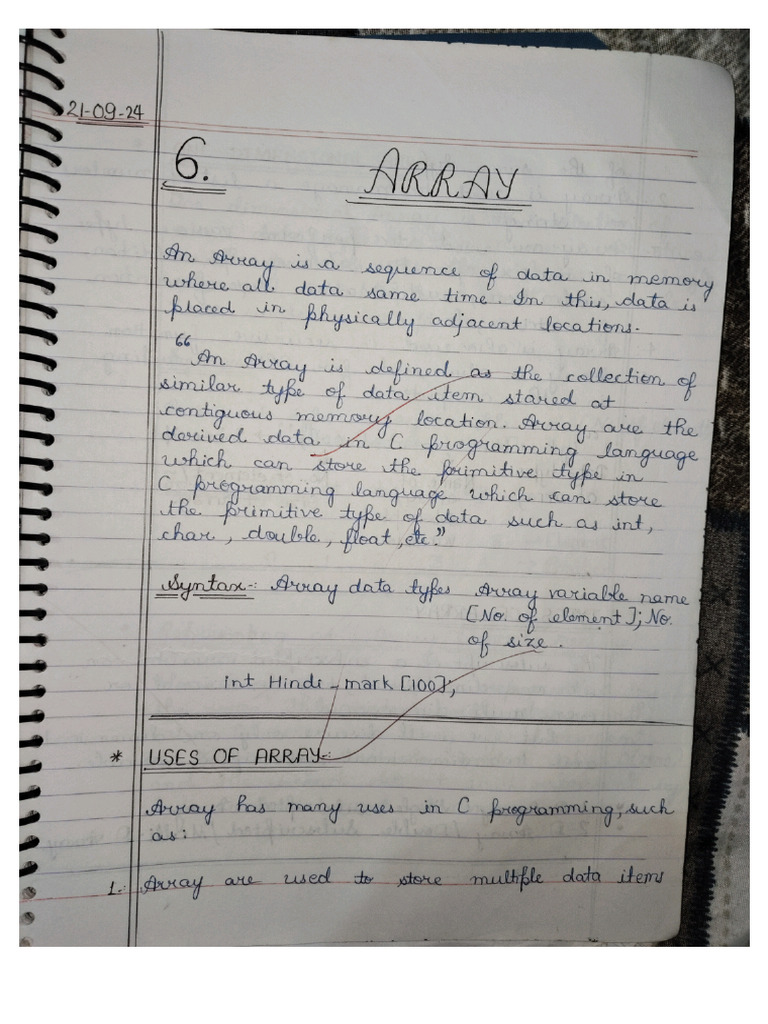 21-09-24
6. ARRAY
An Array is a sequence of data in memory
where all data same time. In this, data is
placed in physically adjacent locations.
“An Array is defined as the collection of
similar type of data item stared at
contiguous memory location. Array are the
derived data in C programming language
which can store the primitive type in
C programming language which can store
the primitive type of data such as int,
char, double, float, etc.”
Syntax:- Array data types Array variable name
[No. of element]; No.
of size.
int Hindi - mark [100];
* USES OF ARRAY:-
Array has many uses in C programming, such
as:
1.: Array are used to store multiple data items